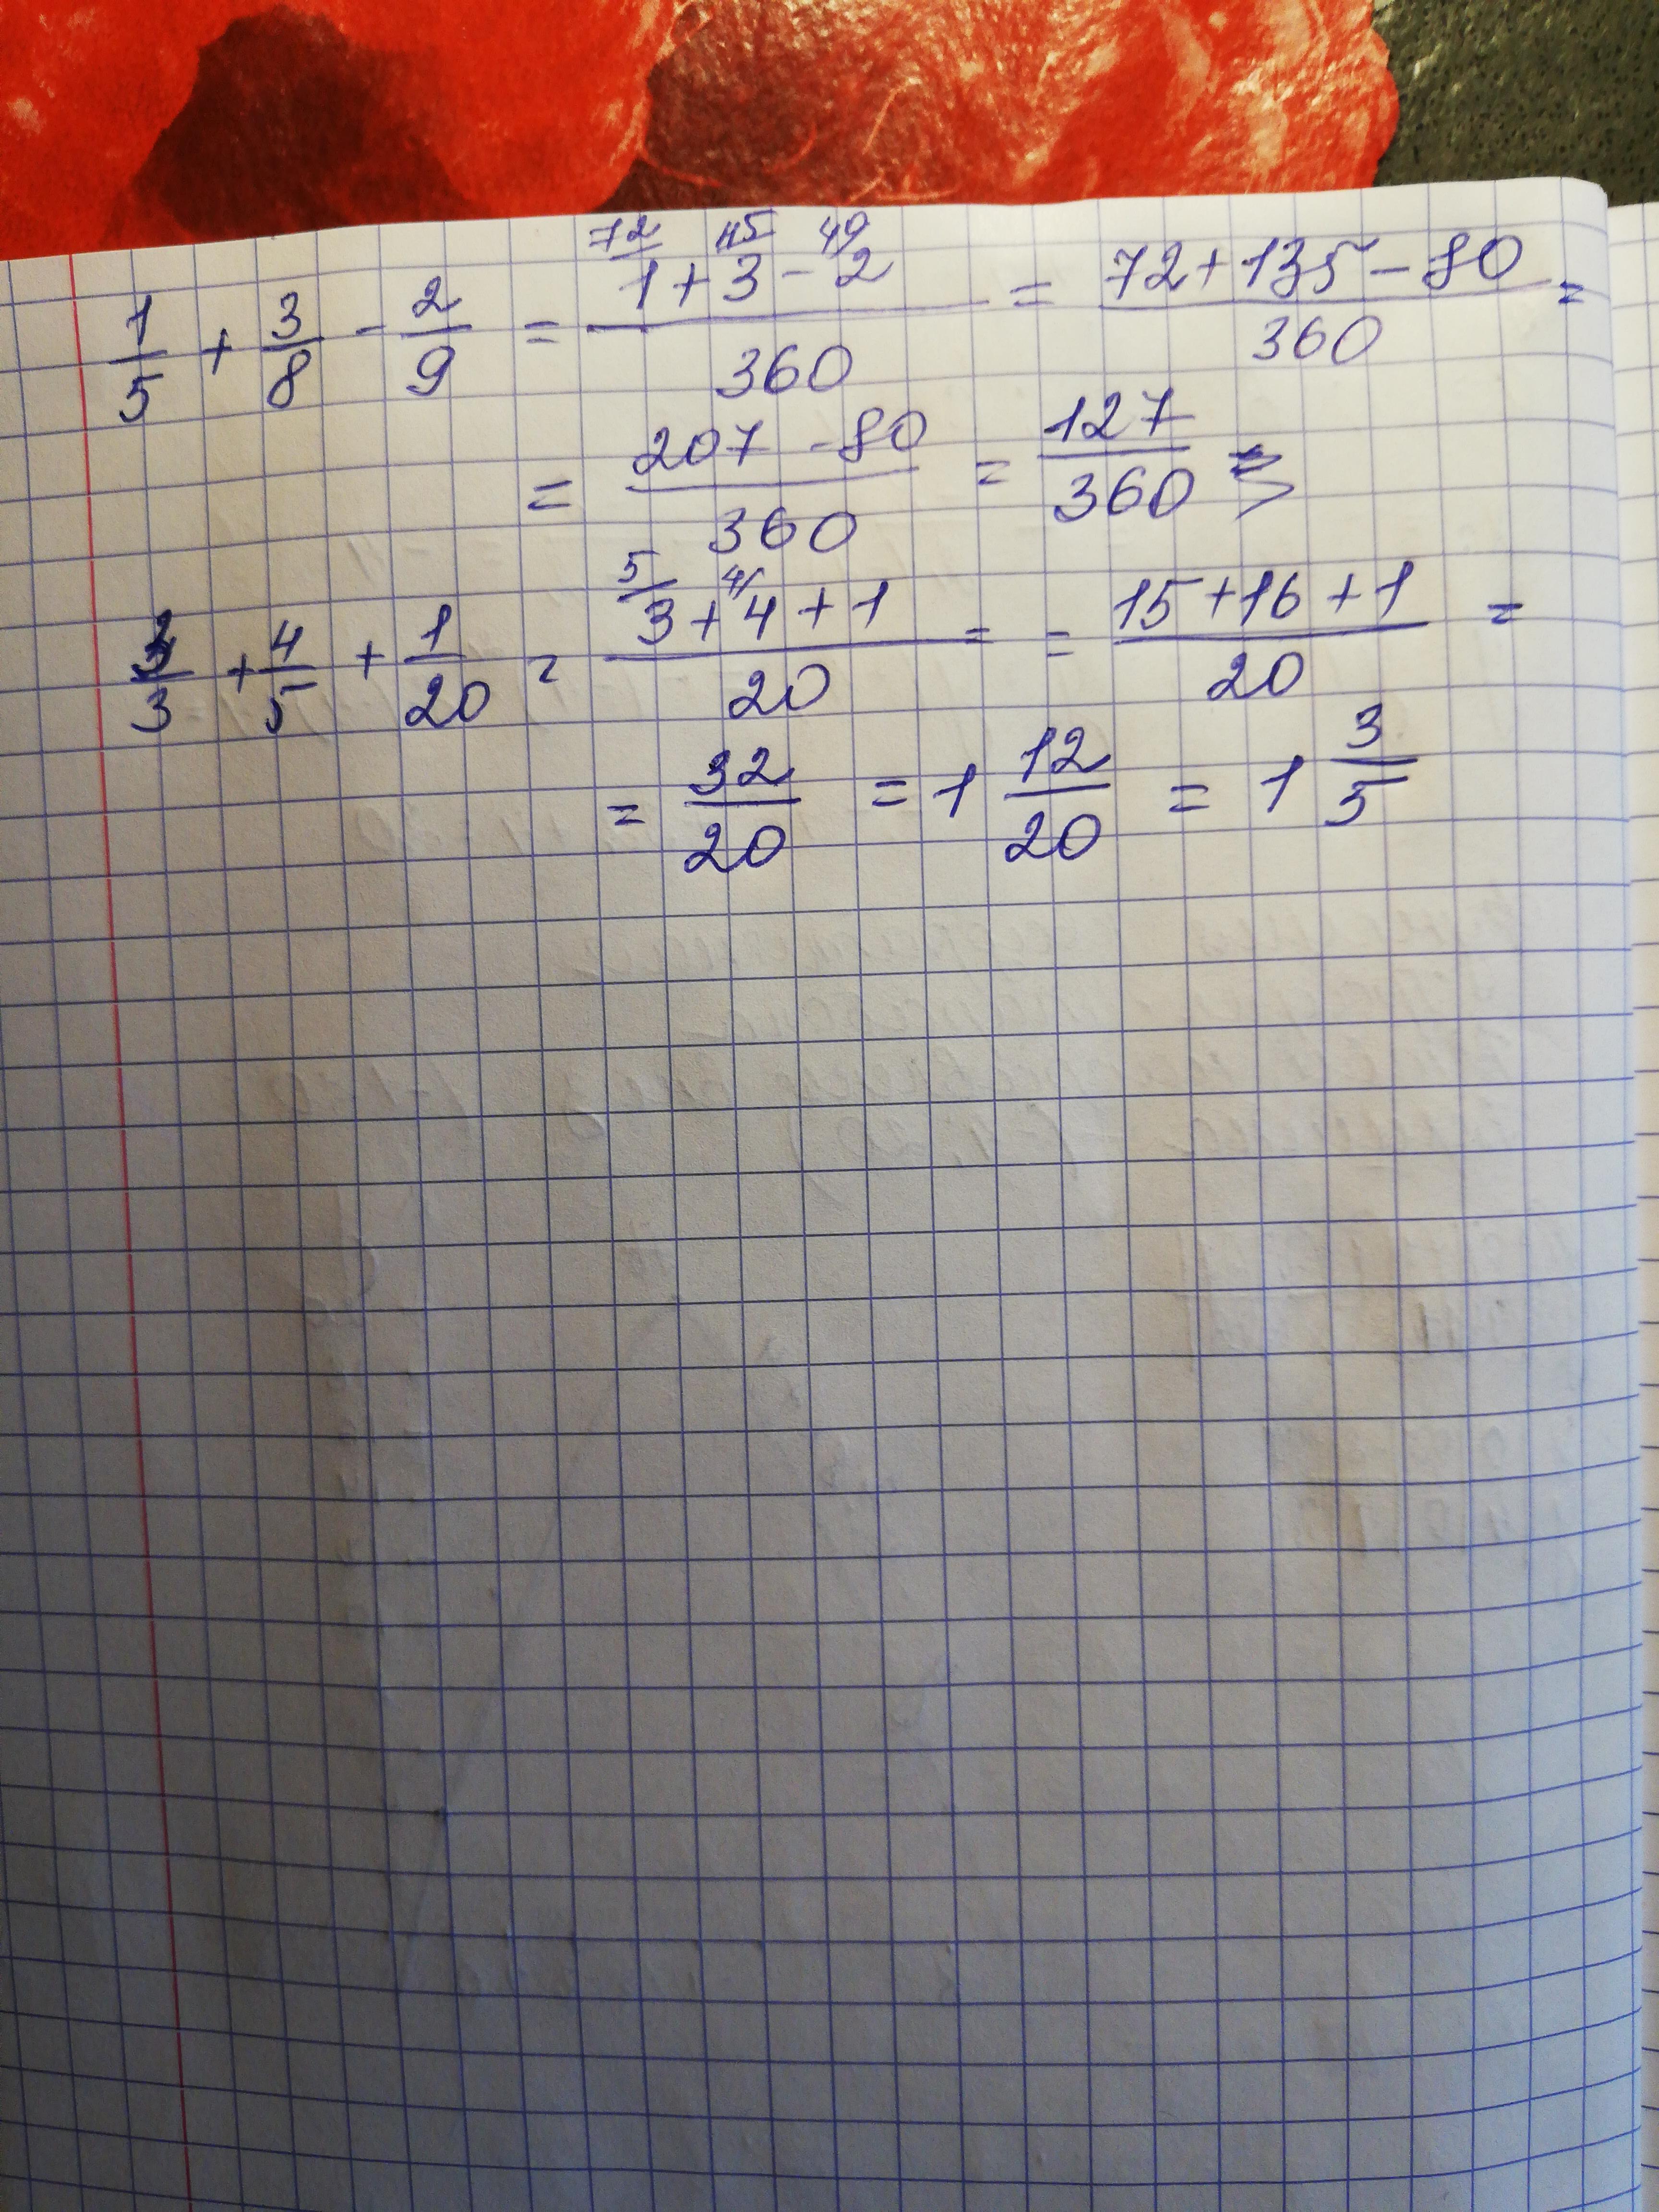 1/5 + 3/8 - 2/9 = (72/1 + 45/3 - 40/2)/360 = (72+135-80)/360 =
= (207-80)/360 = 127/360
/3 + 4/5 + 1/20 = (5/3 + 4/4 + 1)/20 = = (15+16+1)/20 =
= 32/20 = 1 12/20 = 1 3/5